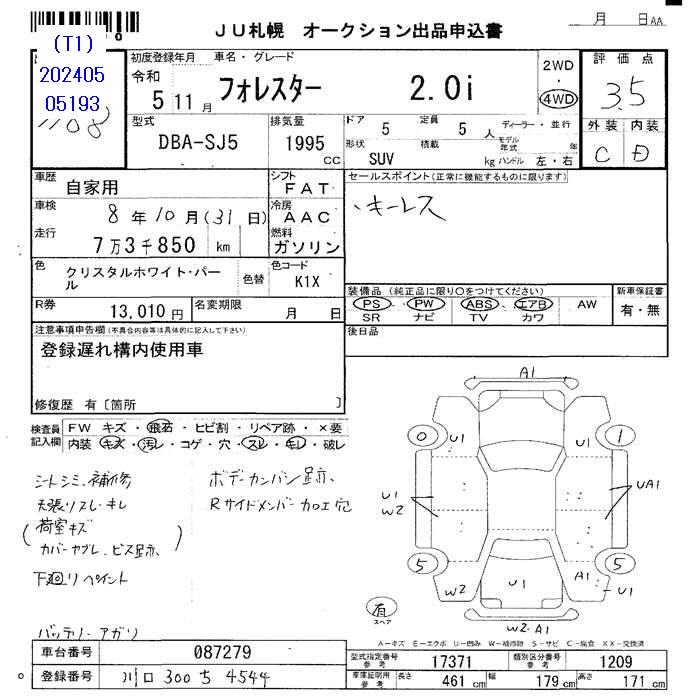 JU札幌 オークション出品申込書
月 日 AA
(T1)
202405
05193
1108
初度登録年月 車名・グレード
令和
5 11月 フォレスター 2.0i
2WD
・
4WD
評価点
3.5
外装 内装
C D
型式 排気量 ドア 5 定員 5 人 ディーラー・並行
DBA-SJ5 1995 CC
形状 SUV 積載 kg モデル年式 年
ハンドル 左・右
車歴 自家用 シフト FAT
セールスポイント(正常に機能するものに限ります)
、キーレス
車検 8年10月(31日) 冷房 AAC
走行 7万3千850 km 燃料 ガソリン
色 クリスタルホワイト・パール 色替 色コード K1X
装備品 (純正品に限り○をつけてください) 新車保証書
PS PW ABS エアB AW 有・無
SR ナビ TV カワ
R券 13,010円 名変期限 月 日
後日品
注意事項申告欄(不具合内容等は具体的に記入して下さい)
登録遅れ構内使用車
修復歴 有〔箇所 〕
検査員 FW キズ・飛石・ヒビ割・リペア跡・×要
記入欄 内装 キズ・汚レ・コゲ・穴・スレ・キレ・破レ
シートシミ、補修
天張リスレ・キレ
(荷室キズ
カバーヤブレ、ビス跡、)
下廻りペイント
バッテリーアガリ
ボデーカンバン跡、
Rサイドメンバーカロエ穴
A1
0 U1 U1 1
U1
W2
UA1
5 5
W2 U1 A1 U1
W2・A1
有
スペア
A－キズ E－エクボ U－凹み W－補修跡 S－サビ C－腐食 XX－交換済
車台番号 087279
登録番号 川口 300 ち 4544
型式指定番号 参考 17371 類別区分番号 参考 1209
車庫証明用 参考 長さ 461 cm 幅 179 cm 高さ 171 cm